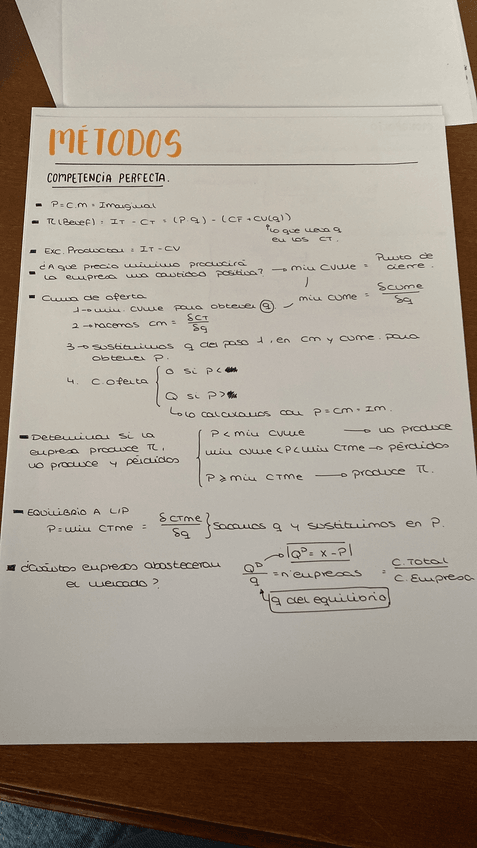 MÉTODOS
COMPETENCIA PERFECTA.
- P = C.m = Imarginal
- π(Benef) = IT - CT = (P.q) - (CF + CV(q))
lo que lleva q
en los CT.
- Exc. Productor = IT - CV
- ¿A que precio mínimo producirá
la empresa una cantidad positiva? → min CVMe = Punto de
cierre.
min CVMe = δCVMe/δq
- Curva de oferta
1 → min. CVMe para obtener q
2 → hacemos Cm = δCT/δq
3 → sustituimos q del paso 1, en Cm y CVMe. para
obtener P.
4. C. oferta { 0 si P <
Q si P >
↳ lo calculamos con P = Cm = Im.
- Determinar si la
empresa produce π,
no produce y pérdidas
P < min CVMe → no produce
min CVMe < P < min CTMe → pérdidas
P ≥ min CTMe → produce π.
- EQUILIBRIO A L/P
P = min CTMe = δCTMe/δq } Sacamos q y sustituimos en P.
- ¿Cuántas empresas abastecerán
el mercado?
Q^D = X - P
Q^D/q = nº empresas = C. Total/C. Empresa
q del equilibrio